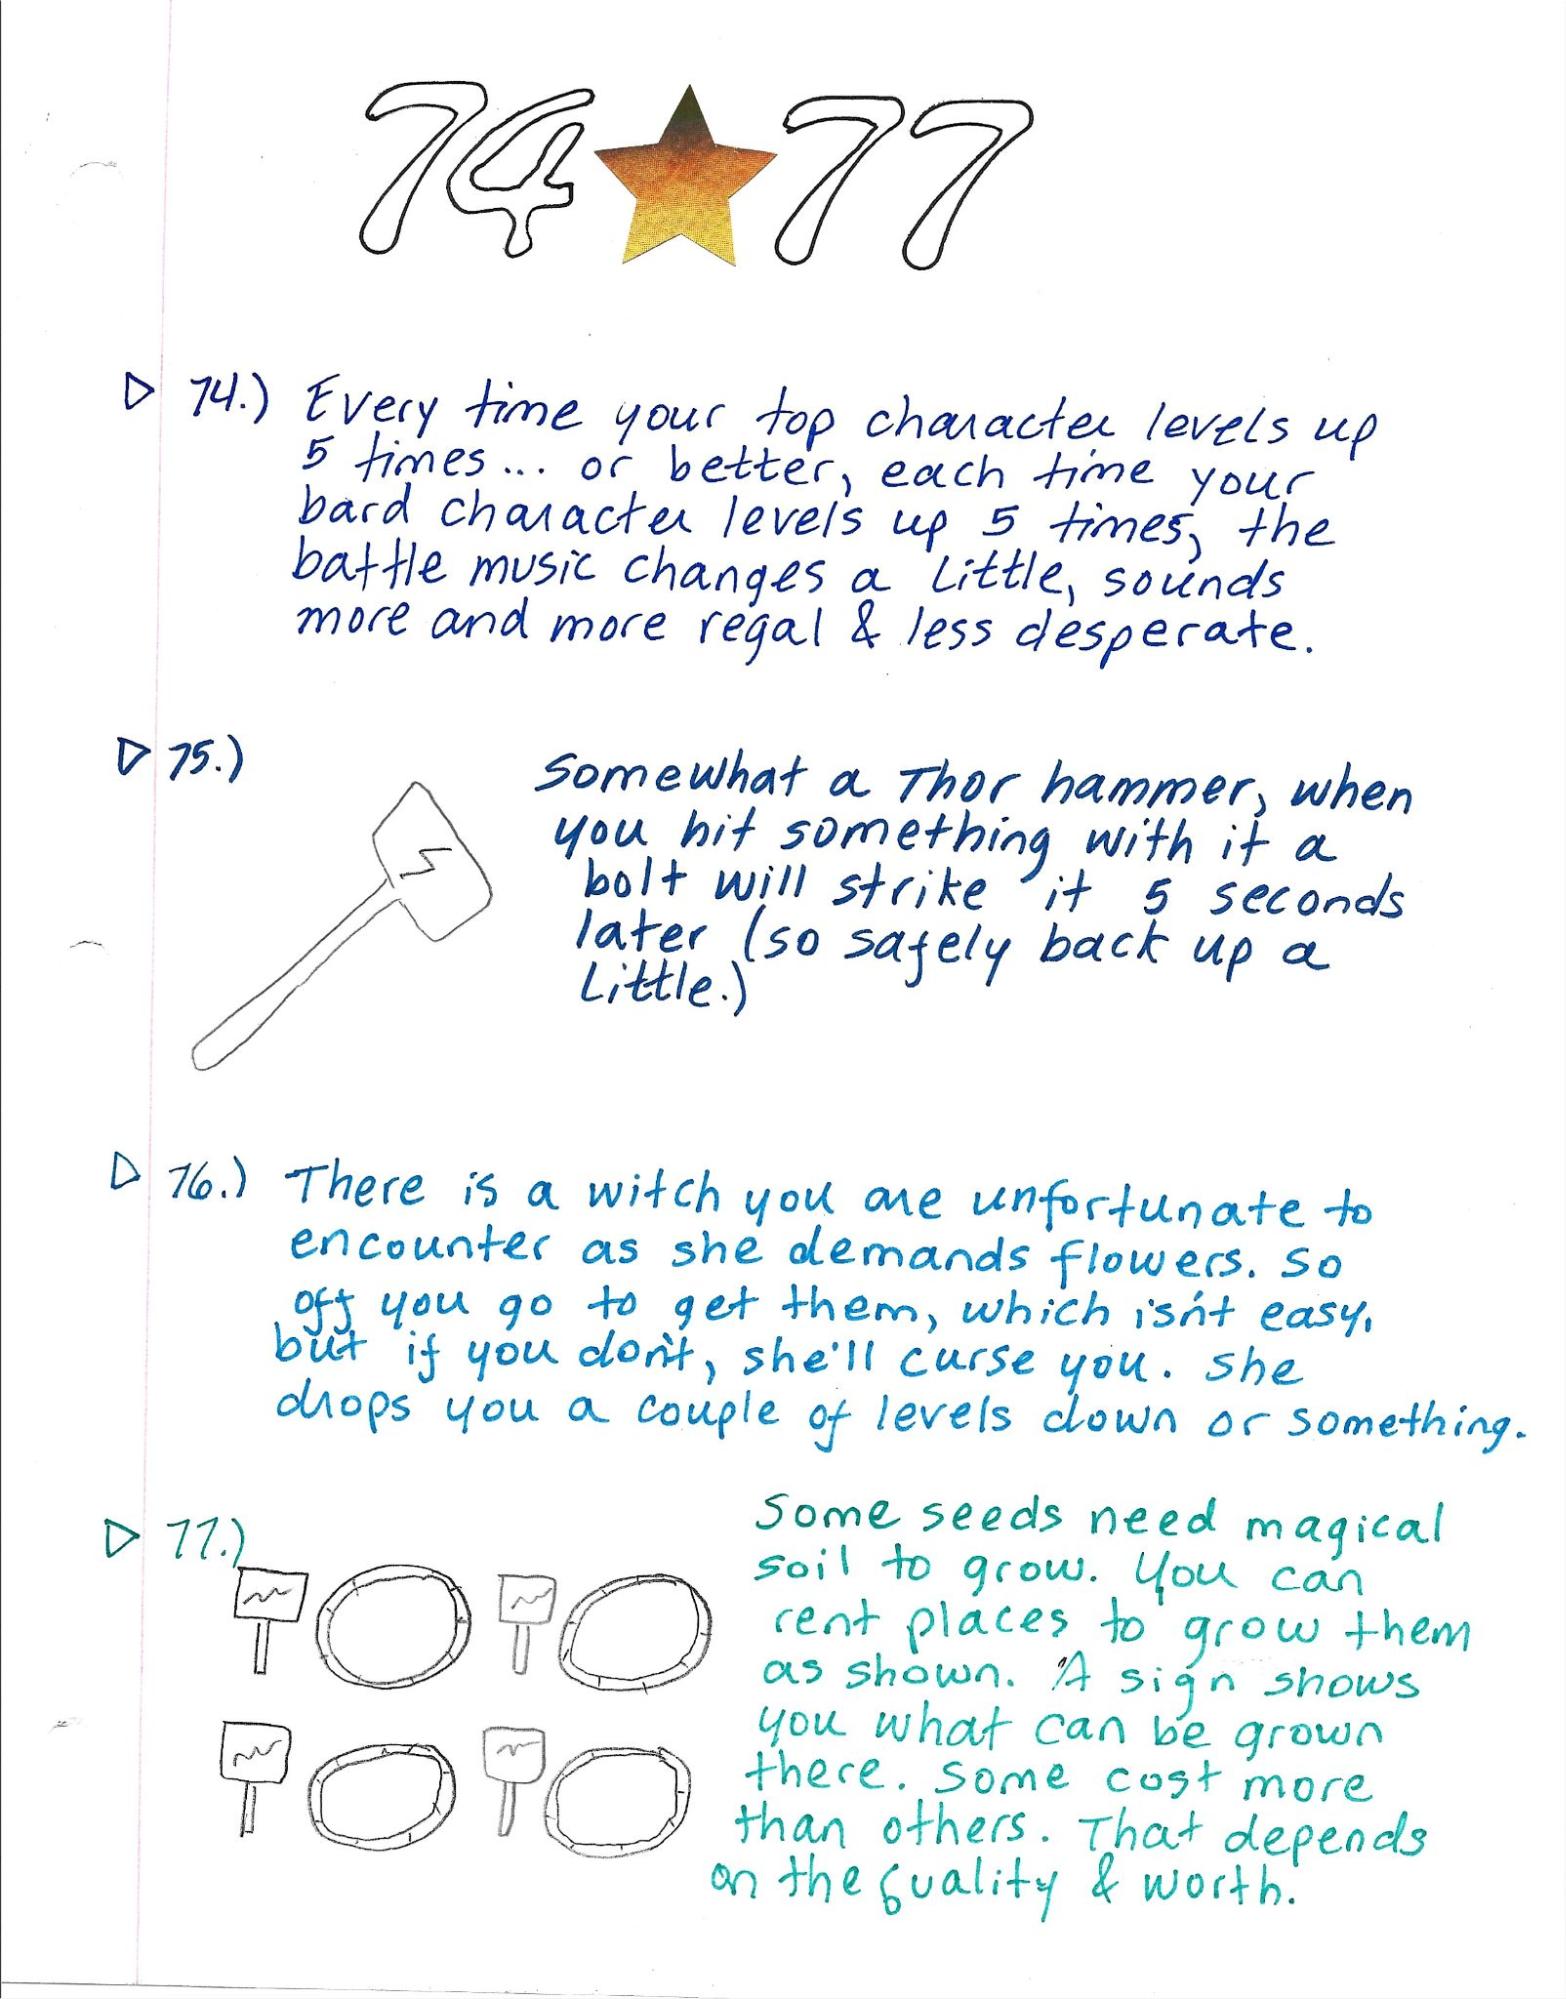 74 77
74.) Every time your top character levels up
5 times... or better, each time your
bard character levels up 5 times, the
battle music changes a little, sounds
more and more regal & less desperate.
75.) Somewhat a Thor hammer, when
you hit something with it a
bolt will strike it 5 seconds
later (so safely back up a
little.)
76.) There is a witch you are unfortunate to
encounter as she demands flowers. So
off you go to get them, which isn't easy,
but if you don't, she'll curse you. She
drops you a couple of levels down or something.
77.) Some seeds need magical
soil to grow. You can
rent places to grow them
as shown. A sign shows
you what can be grown
there. Some cost more
than others. That depends
on the quality & worth.